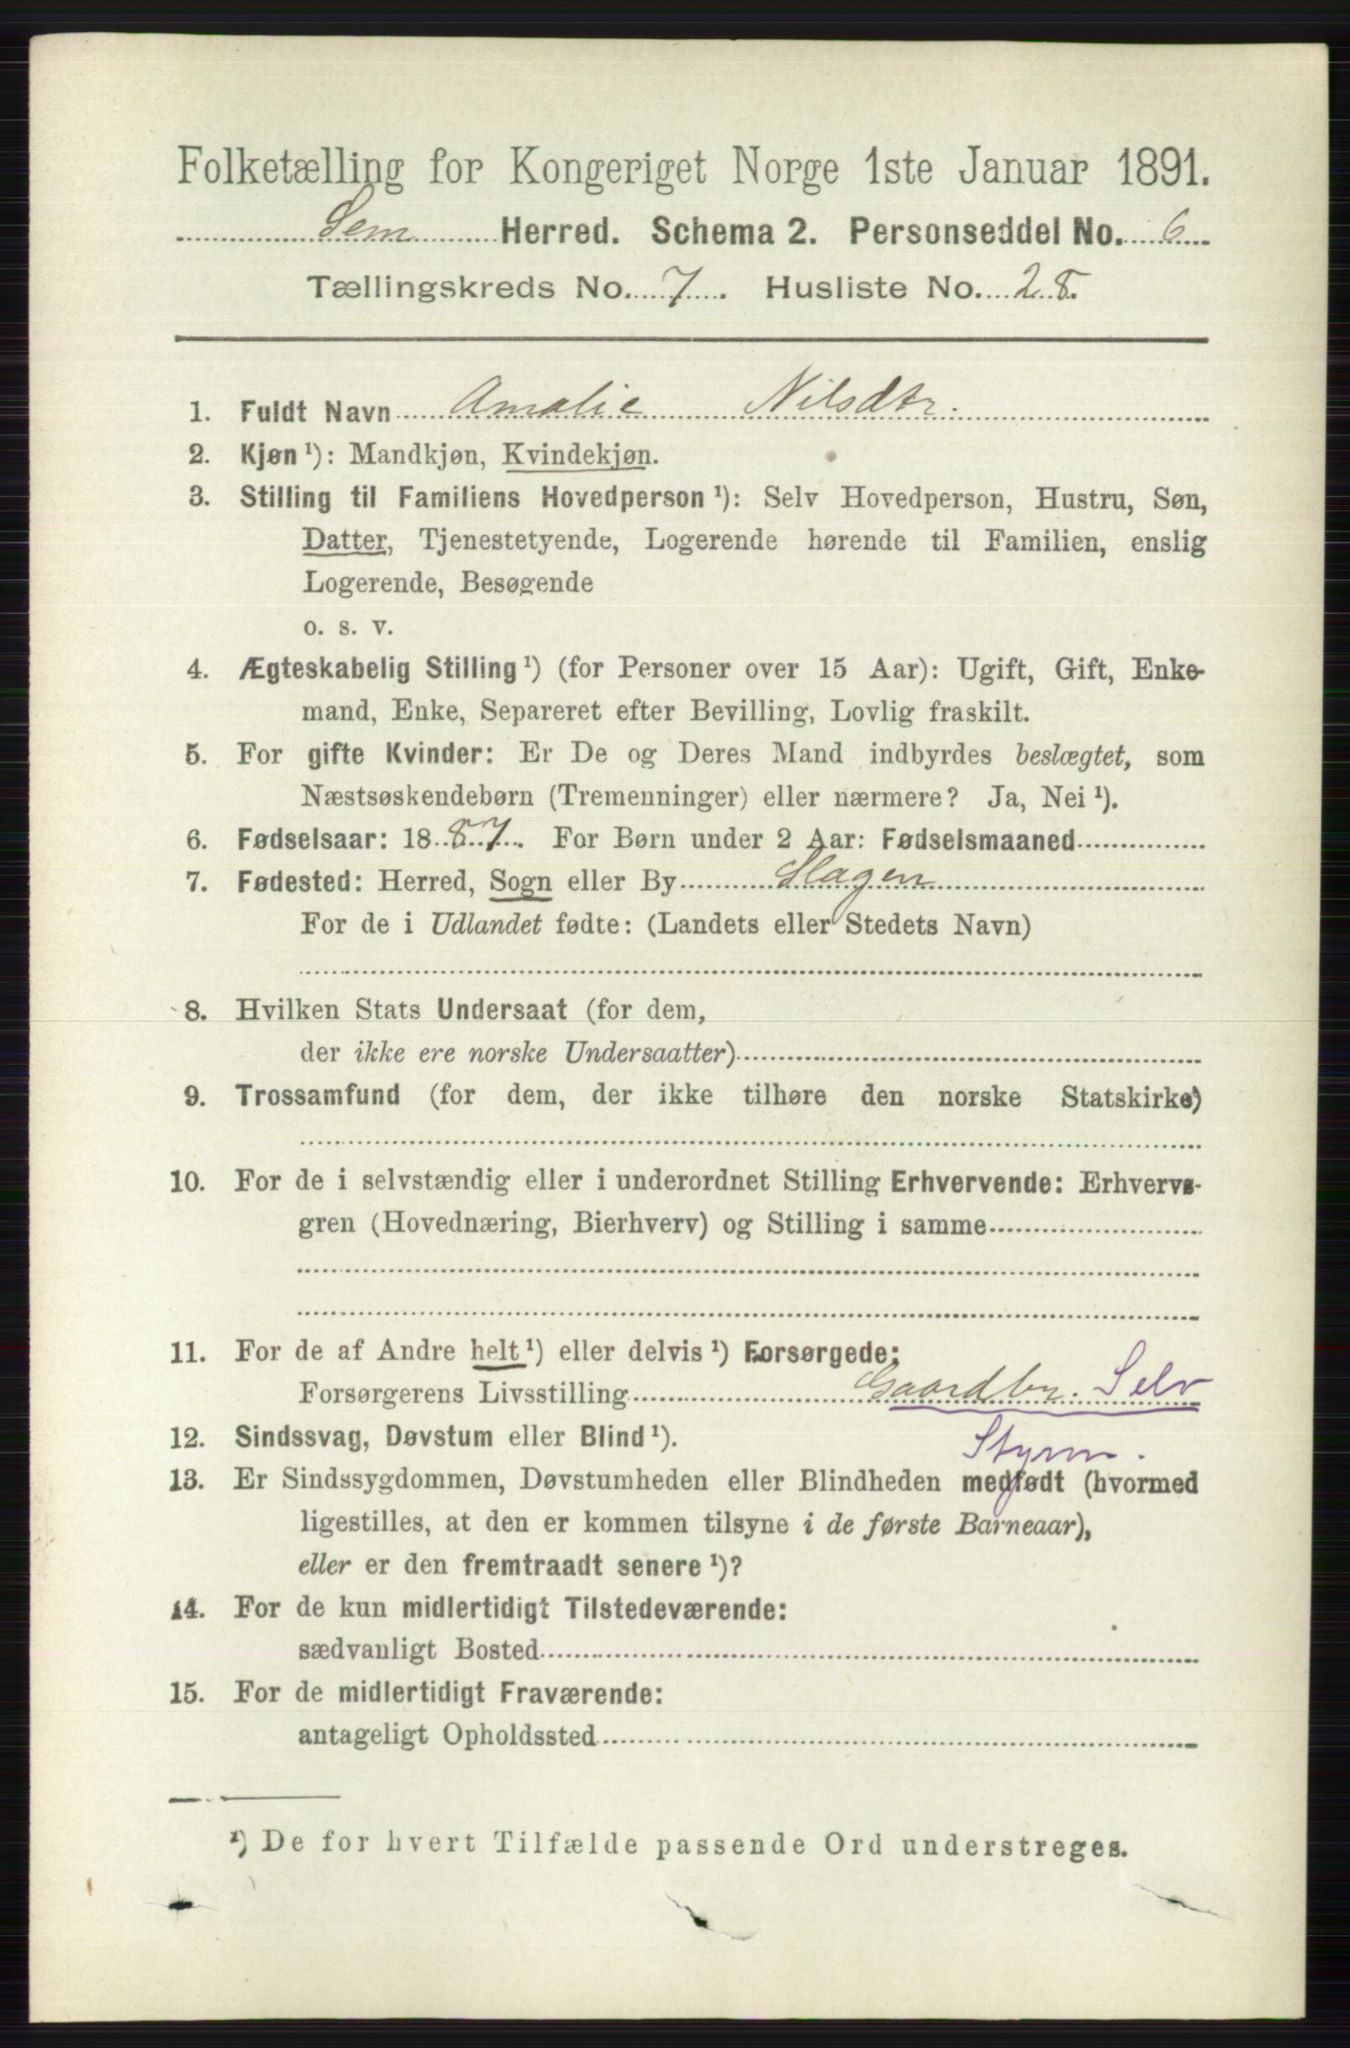 Folketælling for Kongeriget Norge 1ste Januar 1891.
Sem Herred. Schema 2. Personseddel No. 6
Tællingskreds No. 7. Husliste No. 28.
1. Fuldt Navn Amalie Nilsdtr.
2. Kjøn ¹): Mandkjøn, Kvindekjøn.
3. Stilling til Familiens Hovedperson ¹): Selv Hovedperson, Hustru, Søn,
Datter, Tjenestetyende, Logerende hørende til Familien, enslig
Logerende, Besøgende
o. s. v.
4. Ægteskabelig Stilling ¹) (for Personer over 15 Aar): Ugift, Gift, Enke-
mand, Enke, Separeret efter Bevilling, Lovlig fraskilt.
5. For gifte Kvinder: Er De og Deres Mand indbyrdes beslægtet, som
Næstsøskendebørn (Tremenninger) eller nærmere? Ja, Nei ¹).
6. Fødselsaar: 1887. For Børn under 2 Aar: Fødselsmaaned
7. Fødested: Herred, Sogn eller By Slagen
For de i Udlandet fødte: (Landets eller Stedets Navn)
8. Hvilken Stats Undersaat (for dem,
der ikke ere norske Undersaatter)
9. Trossamfund (for dem, der ikke tilhøre den norske Statskirke)
10. For de i selvstændig eller i underordnet Stilling Erhvervende: Erhvervs-
gren (Hovednæring, Bierhverv) og Stilling i samme
11. For de af Andre helt ¹) eller delvis ¹) Forsørgede:
Forsørgerens Livsstilling Gaardbr. Selv
Styrm.
12. Sindssvag, Døvstum eller Blind ¹).
13. Er Sindssygdommen, Døvstumheden eller Blindheden medfødt (hvormed
ligestilles, at den er kommen tilsyne i de første Barneaar),
eller er den fremtraadt senere ¹)?
14. For de kun midlertidigt Tilstedeværende:
sædvanligt Bosted
15. For de midlertidigt Fraværende:
antageligt Opholdssted
¹) De for hvert Tilfælde passende Ord understreges.